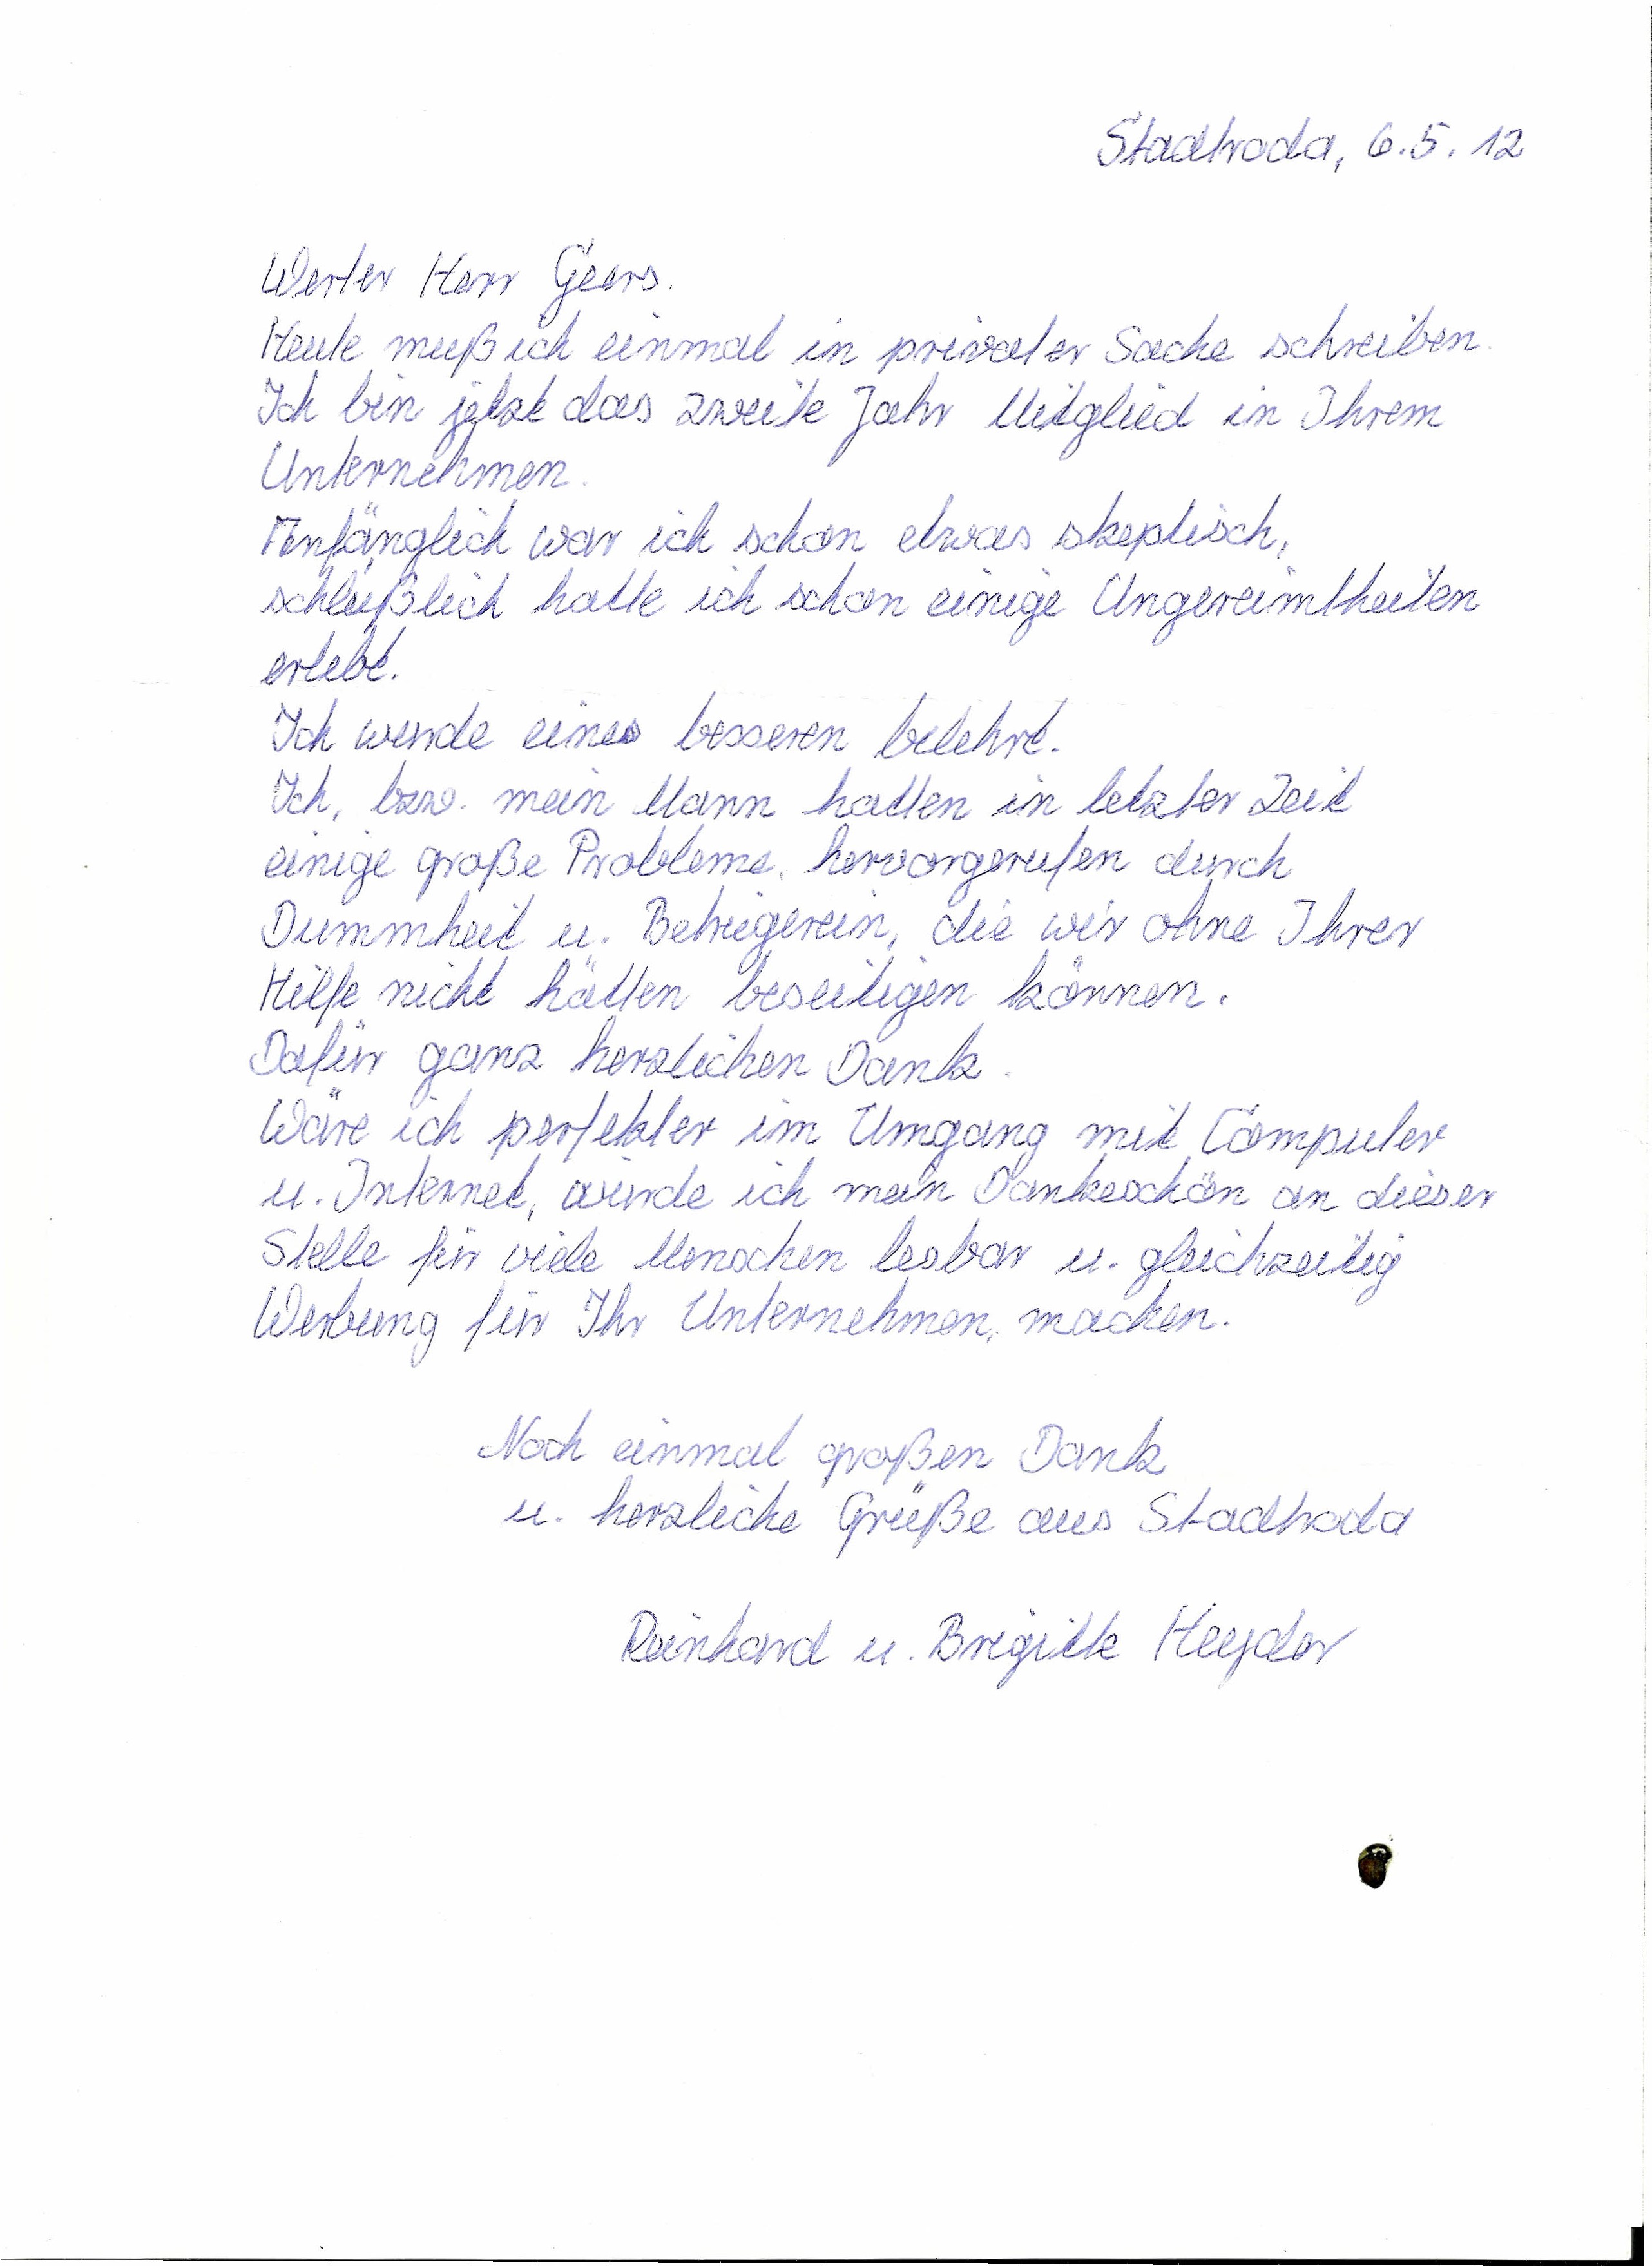 Stadtroda, 6.5.12
Werter Herr Geers.
Heute muß ich einmal in privater Sache schreiben.
Ich bin jetzt das zweite Jahr Mitglied in Ihrem
Unternehmen.
Anfänglich war ich schon etwas skeptisch,
schließlich hatte ich schon einige Ungereimtheiten
erlebt.
Ich wurde eines besseren belehrt.
Ich, bzw. mein Mann hatten in letzter Zeit
einige große Probleme, hervorgerufen durch
Dummheit u. Betrügerein, die wir ohne Ihrer
Hilfe nicht hätten beseitigen können.
Dafür ganz herzlichen Dank.
Wäre ich perfekter im Umgang mit Computer
u. Internet, würde ich mein Dankeschön an dieser
Stelle für viele Menschen lesbar u. gleichzeitig
Werbung für Ihr Unternehmen, machen.
Noch einmal großen Dank
u. herzliche Grüße aus Stadtroda
Reinhard u. Brigitte Heyder